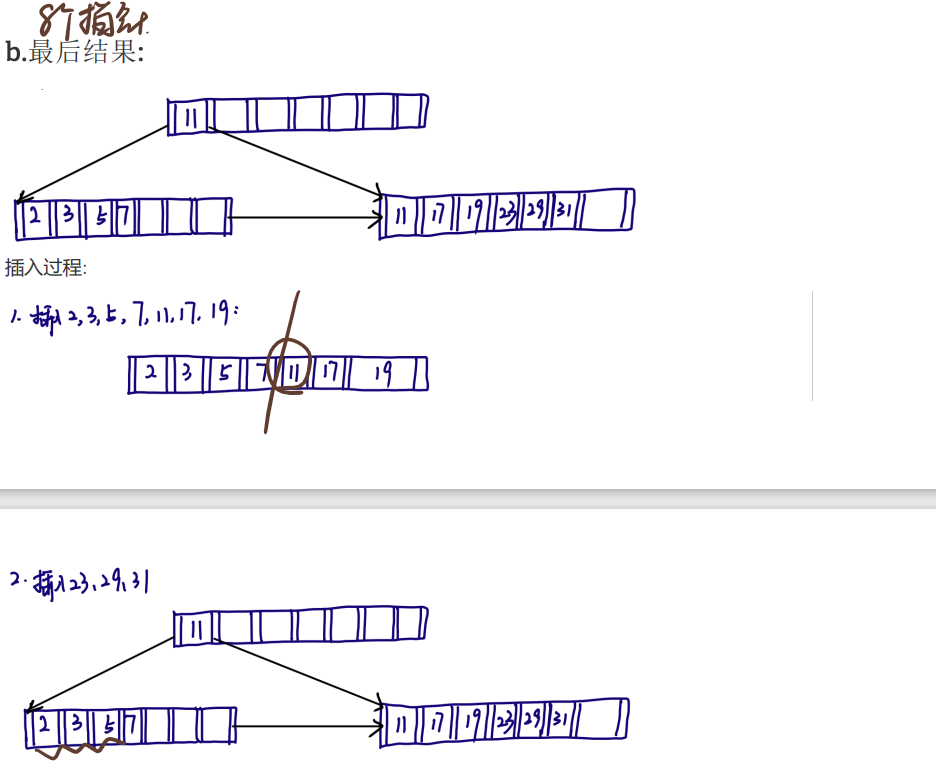 8个指针.
b.最后结果:
11
2 3 5 7
11 17 19 23 29 31
插入过程:
1. 插入2,3,5,7,11,17,19:
2 3 5 7 11 17 19
2. 插入23、29、31
11
2 3 5 7
11 17 19 23 29 31